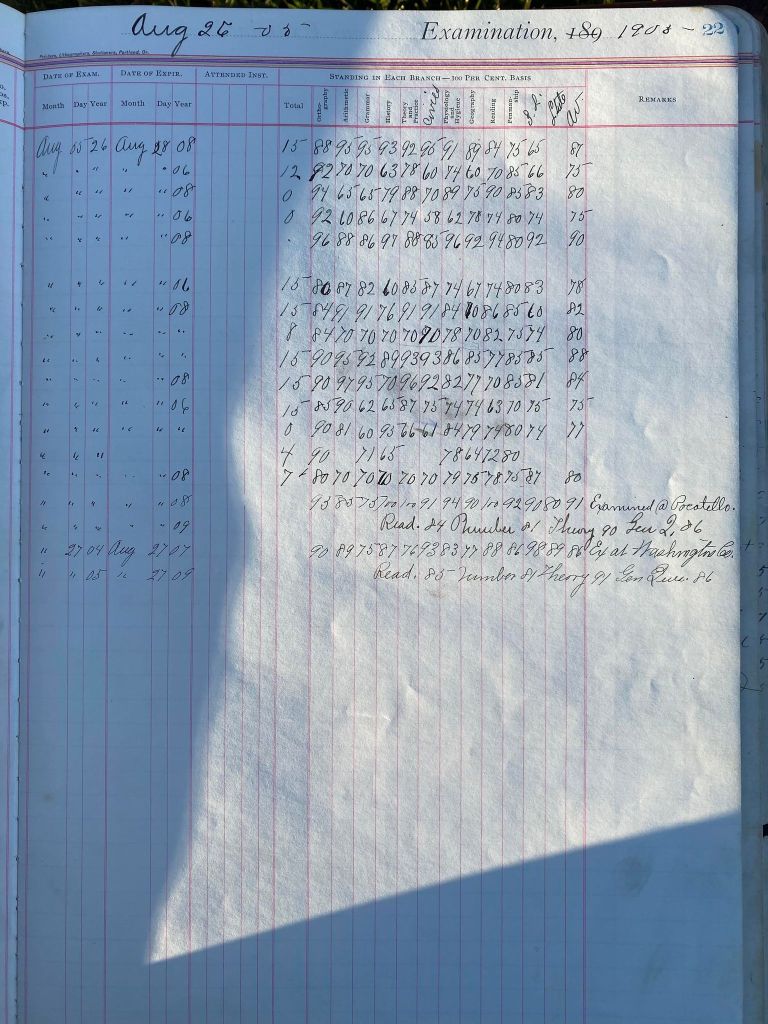 Aug 26 - 05 Examination, 189 1905 - 22
Printers, Lithographers, Stationers, Portland, Or.
DATE OF EXAM. DATE OF EXPIR. ATTENDED INST. STANDING IN EACH BRANCH—100 PER CENT. BASIS
Month Day Year Month Day Year Total Orthography Arithmetic Grammar History Theory and Practice Civics Physiology and Hygiene Geography Reading Penmanship S.L. Av REMARKS
Aug 05 26 Aug 28 08 15 88 95 95 93 92 95 91 89 84 75 65 87
" " " " " 06 12 92 70 70 63 78 60 74 60 70 85 66 75
" " " " " 08 0 94 65 65 79 88 70 89 75 90 85 83 80
" " " " " 06 0 92 60 86 67 74 58 62 78 74 80 74 75
" " " " " 08 . 96 88 86 97 88 85 96 92 94 80 92 90
" " " " " 06 15 80 87 82 60 85 87 74 67 74 80 83 78
" " " " " 08 15 84 91 91 76 91 91 84 70 86 85 60 82
" " " " " " 8 84 70 70 70 70 90 78 70 82 75 74 80
" " " " " " 15 90 95 92 89 93 93 86 85 77 85 85 88
" " " " " 08 15 90 97 95 70 96 92 82 77 70 85 81 84
" " " " " 06 15 85 90 62 65 87 75 74 74 63 70 75 75
" " " " " " 0 90 81 60 95 66 61 84 79 79 80 74 77
" " " 4 90 71 65 78 64 72 80
" " " " " 08 7 80 70 70 70 70 70 79 75 78 75 87 80
" " " " " 08 95 85 75 100 100 91 94 90 100 92 90 80 91 Examined @ Pocatello.
" " " " " 09 Read. 84 Number 81 Theory 90 Gen 2, 86
" 27 04 Aug 27 07 90 89 75 87 76 93 83 77 88 86 98 89 86 Ex at Washington Co.
" " 05 " 27 09 Read. 85 Number 81 Theory 91 Gen Ques. 86